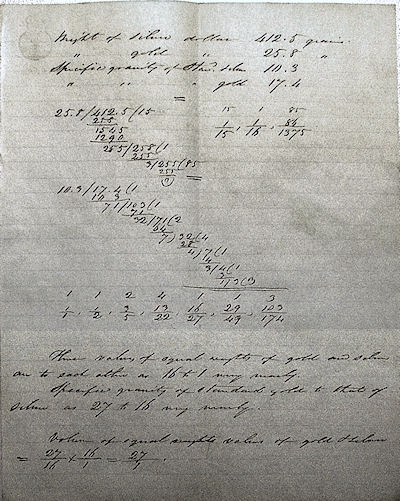 Weight of silver dollar 412.5 grains.
" gold " 25.8 "
Specific gravity of Stan. silver 10.3
" " " gold 17.4
25.8/412.5(15
258
1545
1290
255/258(1
255
3/255(85
255
0
15 1 85
1/15, 1/16, 86/1375
10.3/17.4(1
10 3
71/103(1
71
32/71(2
64
7)32(4
28
4/7(1
4
3/4(1
3
1/3(3
1 1 2 4 1 1 3
1/1, 1/2, 3/5, 13/22, 16/27, 29/49, 103/174
Thus values of equal weights of gold and silver
are to each other as 16 to 1 very nearly.
Specific gravity of standard gold to that of
silver as 27 to 16 very nearly.
values of gold & silver
= 27/16 × 16/1 = 27/1.